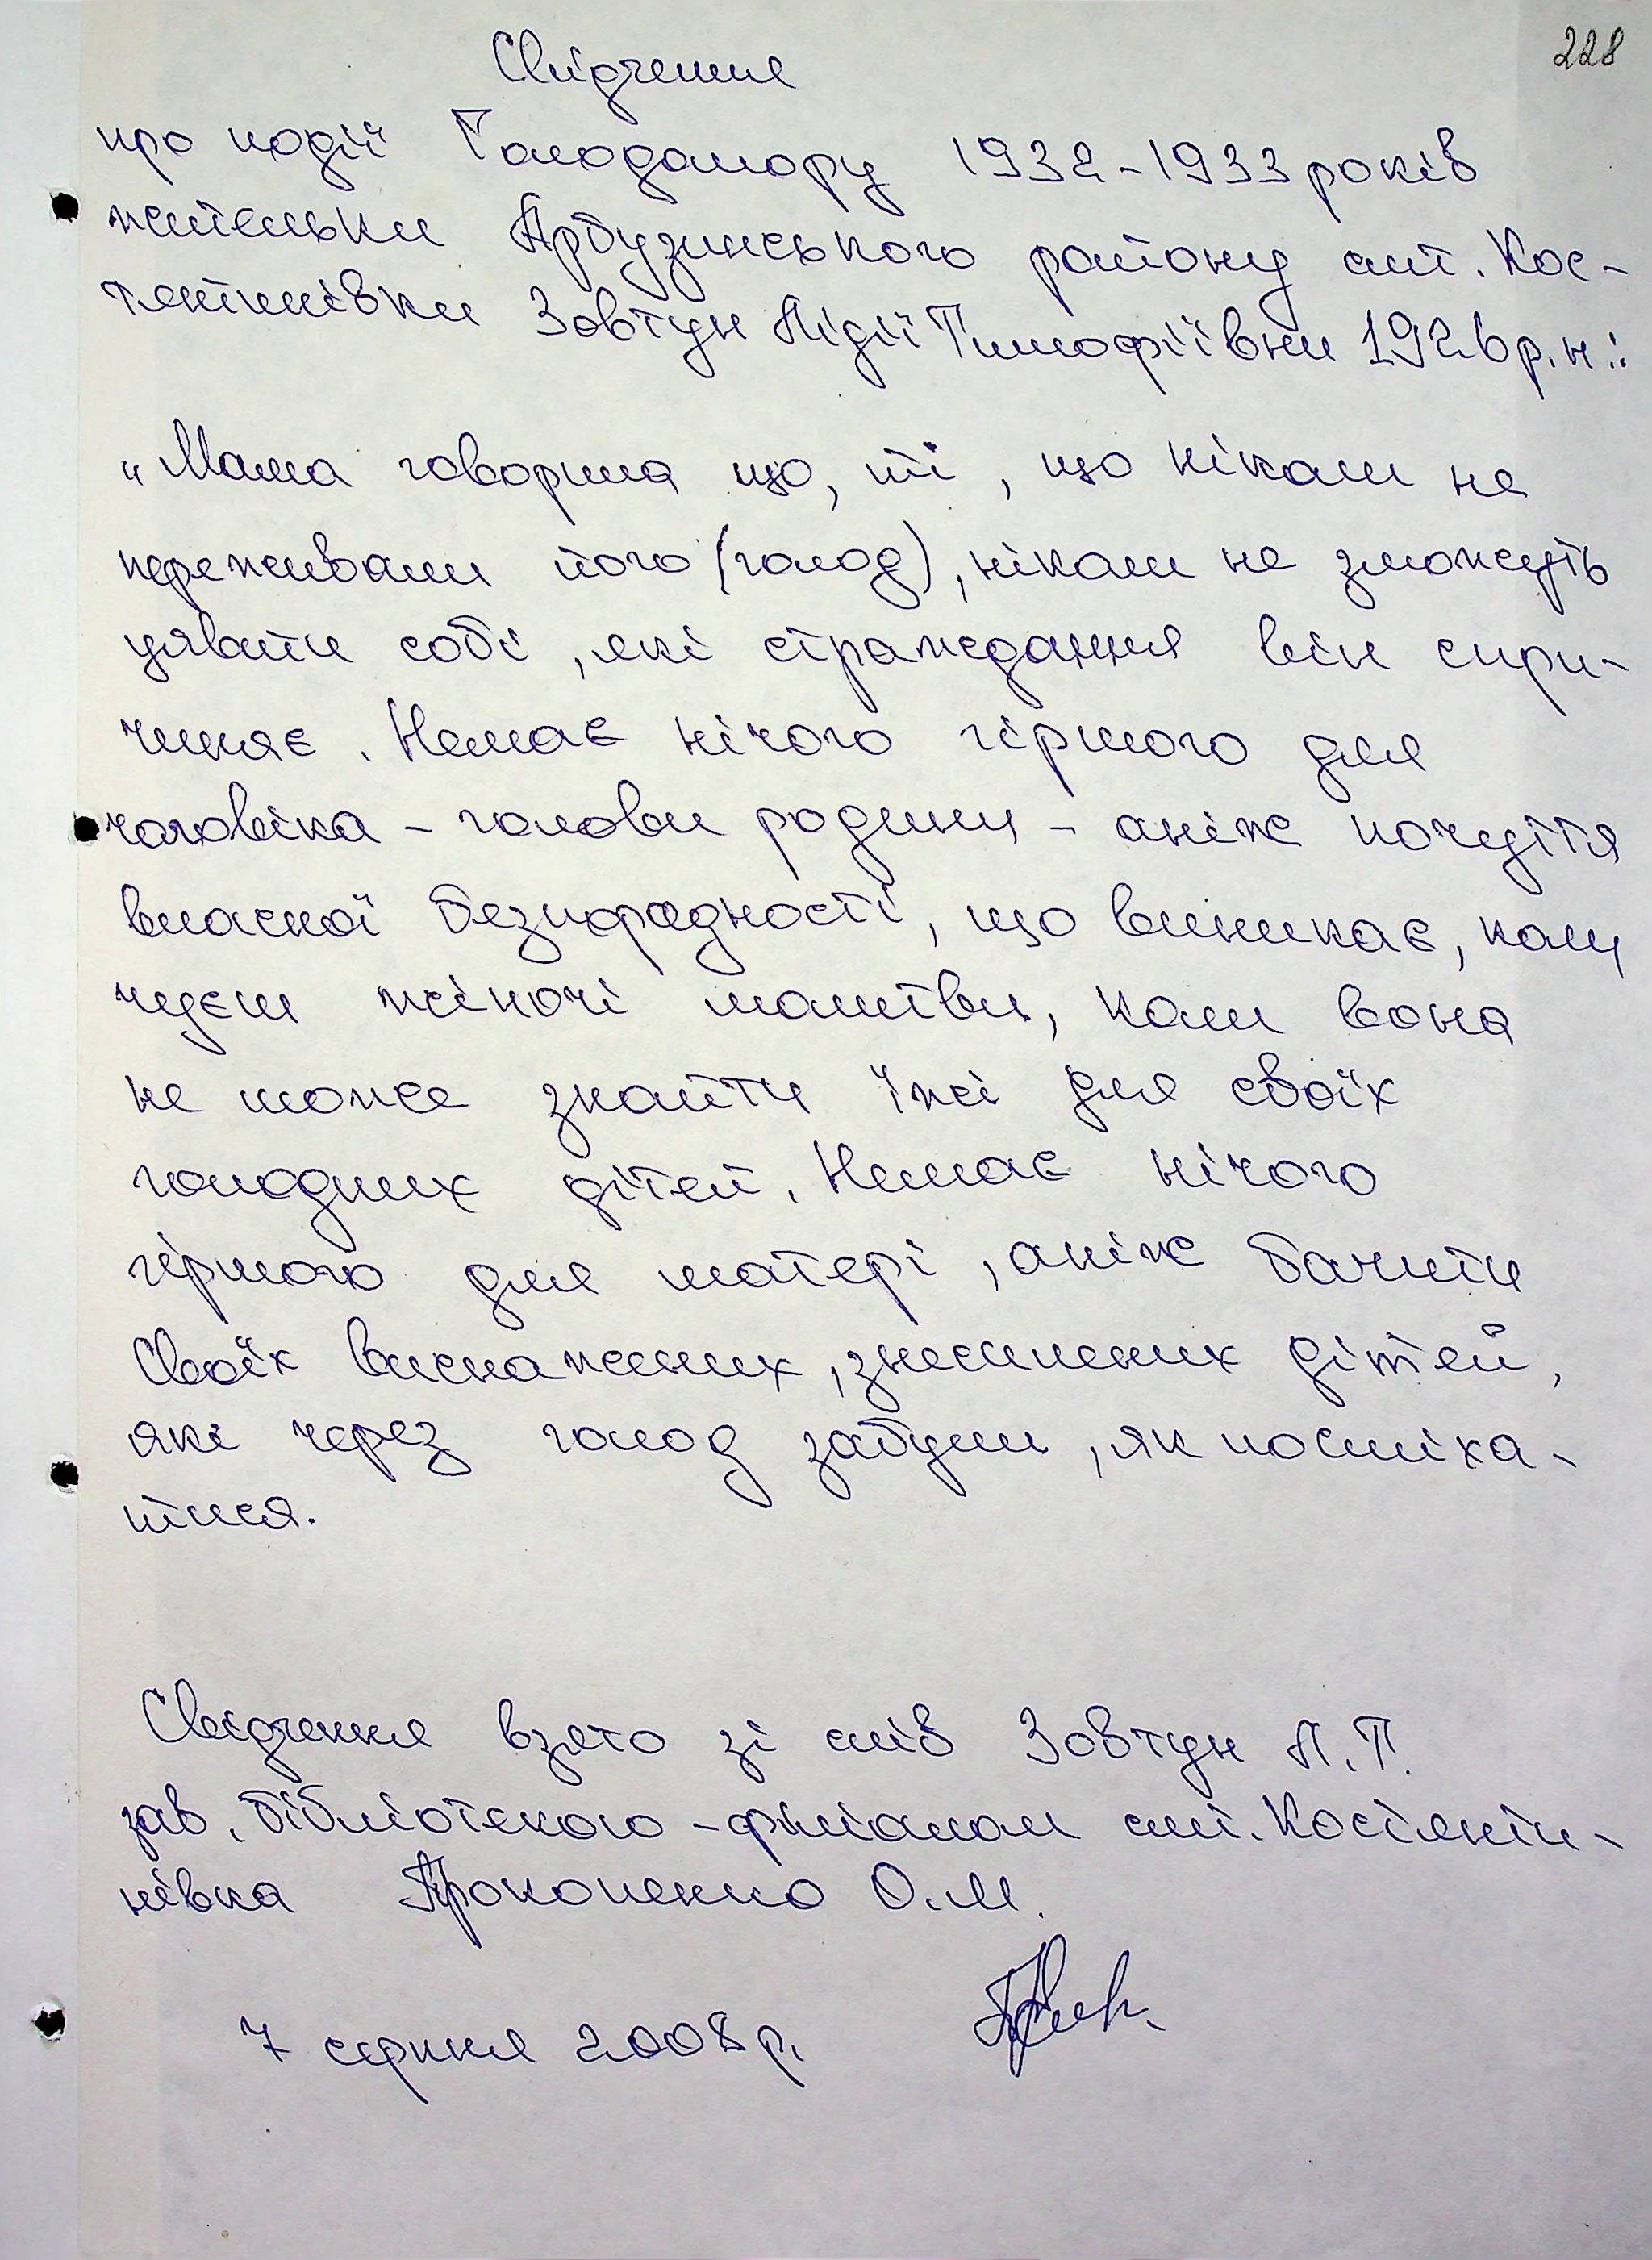 228
Свідчення
про події Голодомору 1932-1933 років
жительки Арбузинського району смт. Кос-
тянтинівки Зовтун Лідії Тимофіївни 1926 р.н.:
„Мама говорила що, ті, що ніколи не
переживали його (голод), ніколи не зможуть
уявити собі, які страждання він спри-
чиняє. Немає нічого гіршого для
чоловіка - голови родини - аніж почуття
власної безпорадності, що виникає, коли
чуєш жіночі молитви, коли вона
не може знайти їжі для своїх
голодних дітей. Немає нічого
гіршого для матері, аніж бачити
своїх виснажених, знесилених дітей,
які через голод забули, як посміха-
тися.
Свідчення взято зі слів Зовтун Л.Т.
зав. бібліотекою-філіалом смт. Костянти-
нівка Прокопенко О.М.
7 серпня 2008 р.